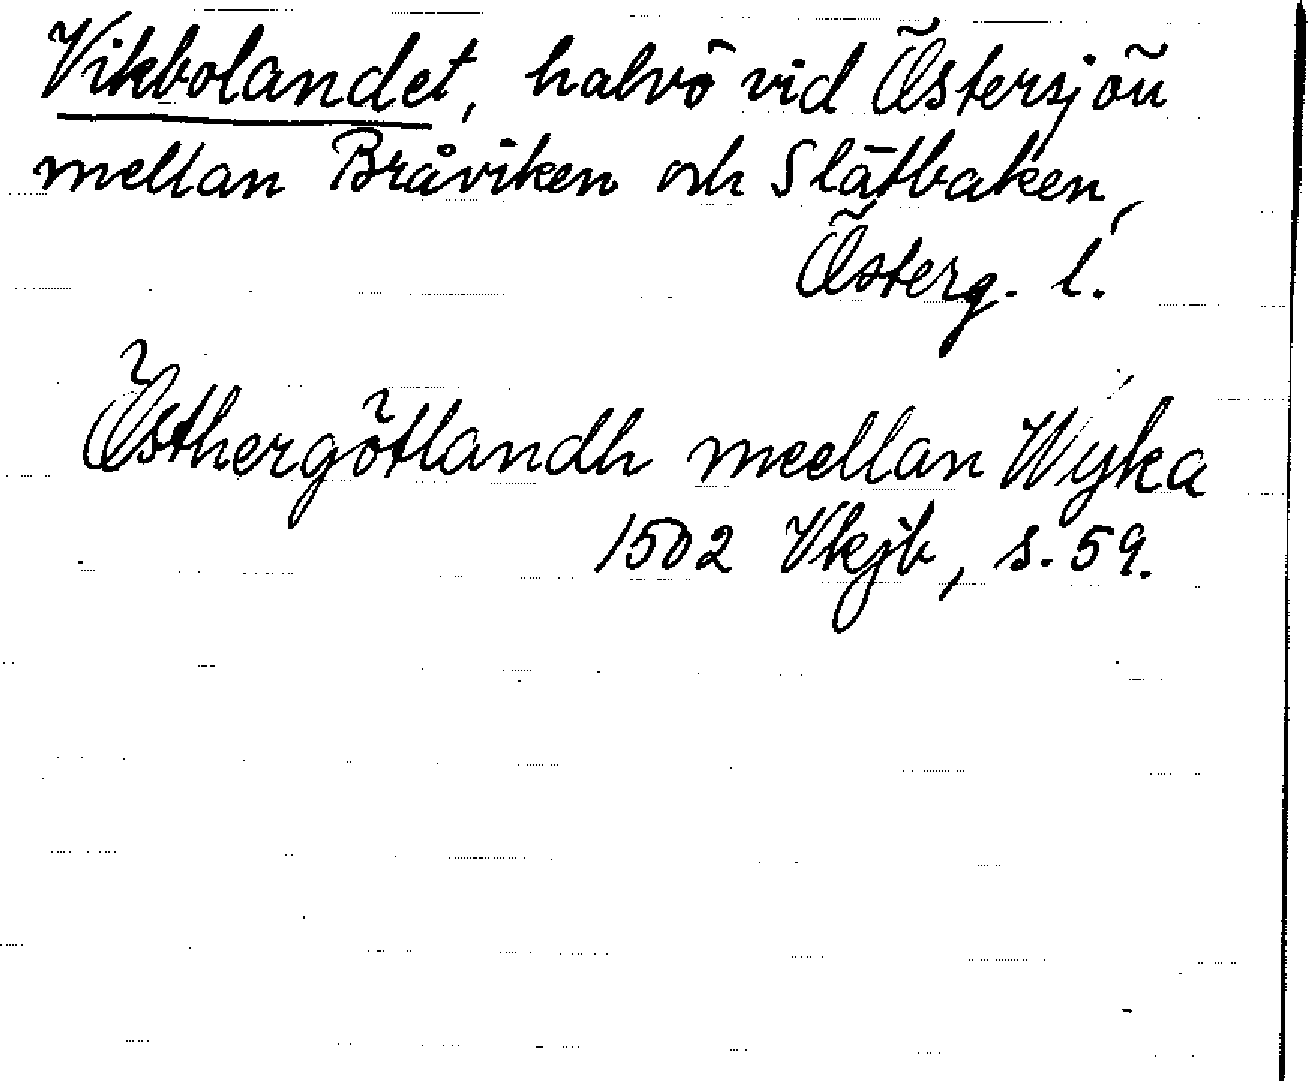 Vikbolandet, halvö vid Östersjön
mellan Bråviken och Slätbaken,
Österg. l.
Östhergötlandh meellan Wyka
1502 Vkjb, s. 59.